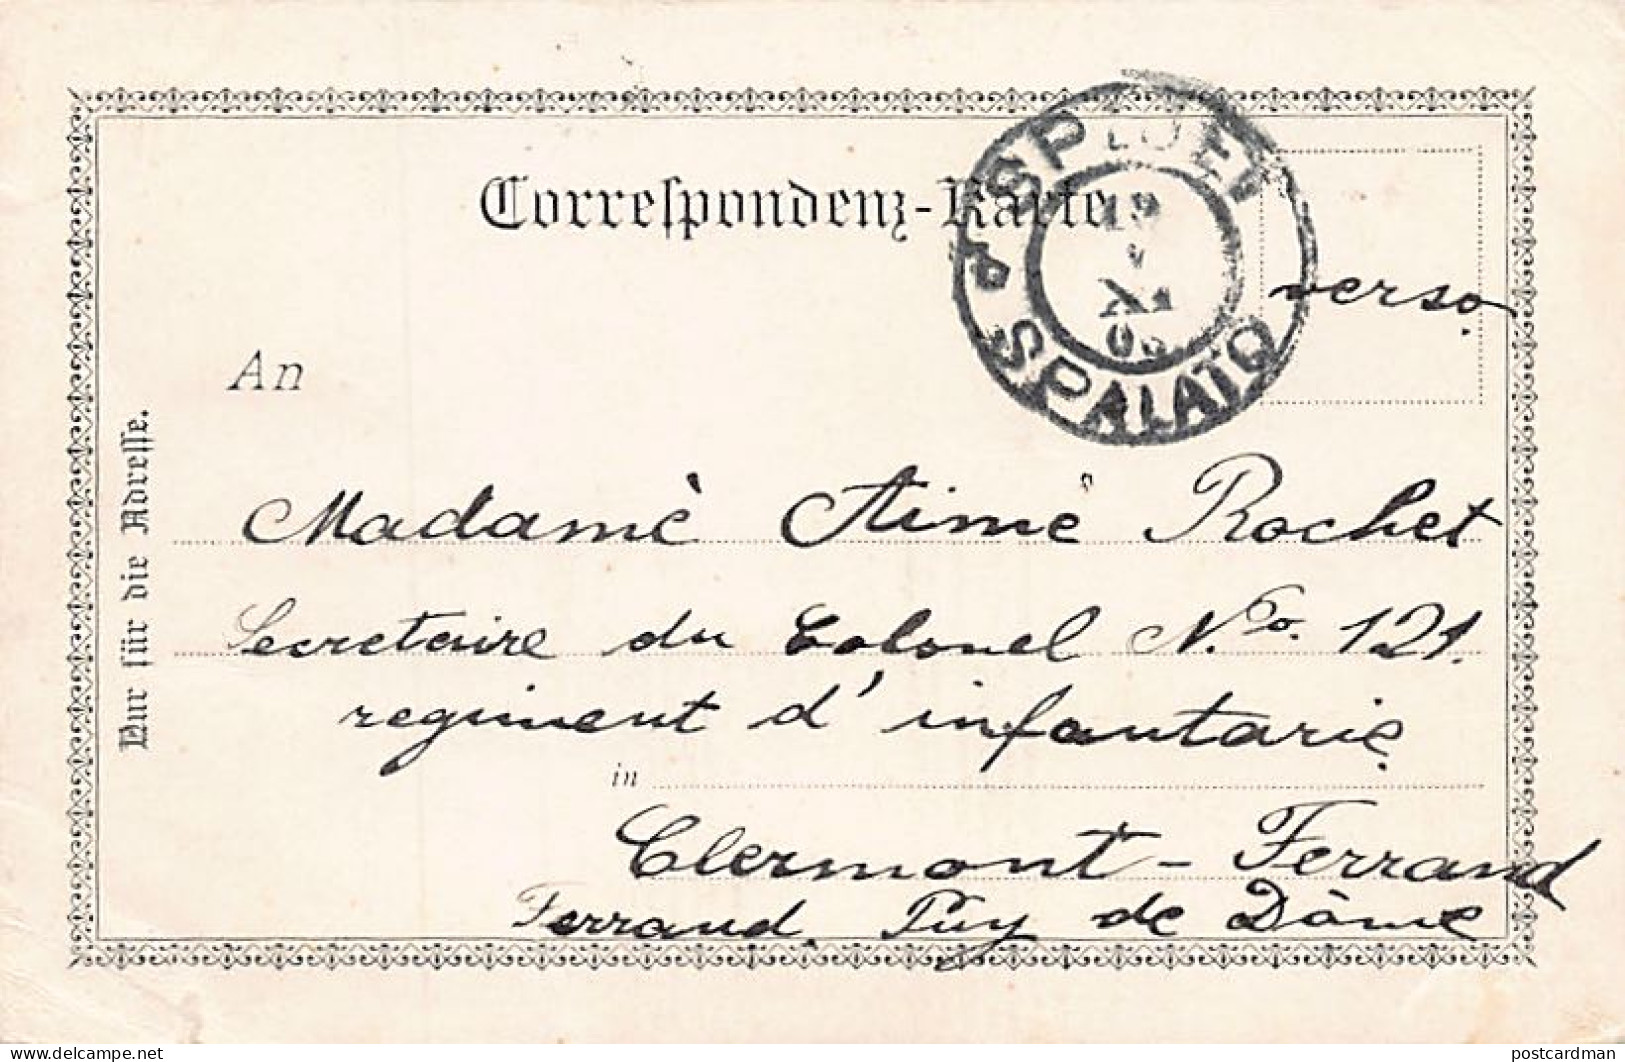 Correspondenz-Karte
SPLJET
SPALATO
verso
An
Nur für die Adresse.
Madamè Aimé Rochet
Secretaire du Colonel No. 121.
regiment d'infantarie.
in
Clermont-Ferrand
Ferrand. Puy de Dôme
delcampe.net
postcardman